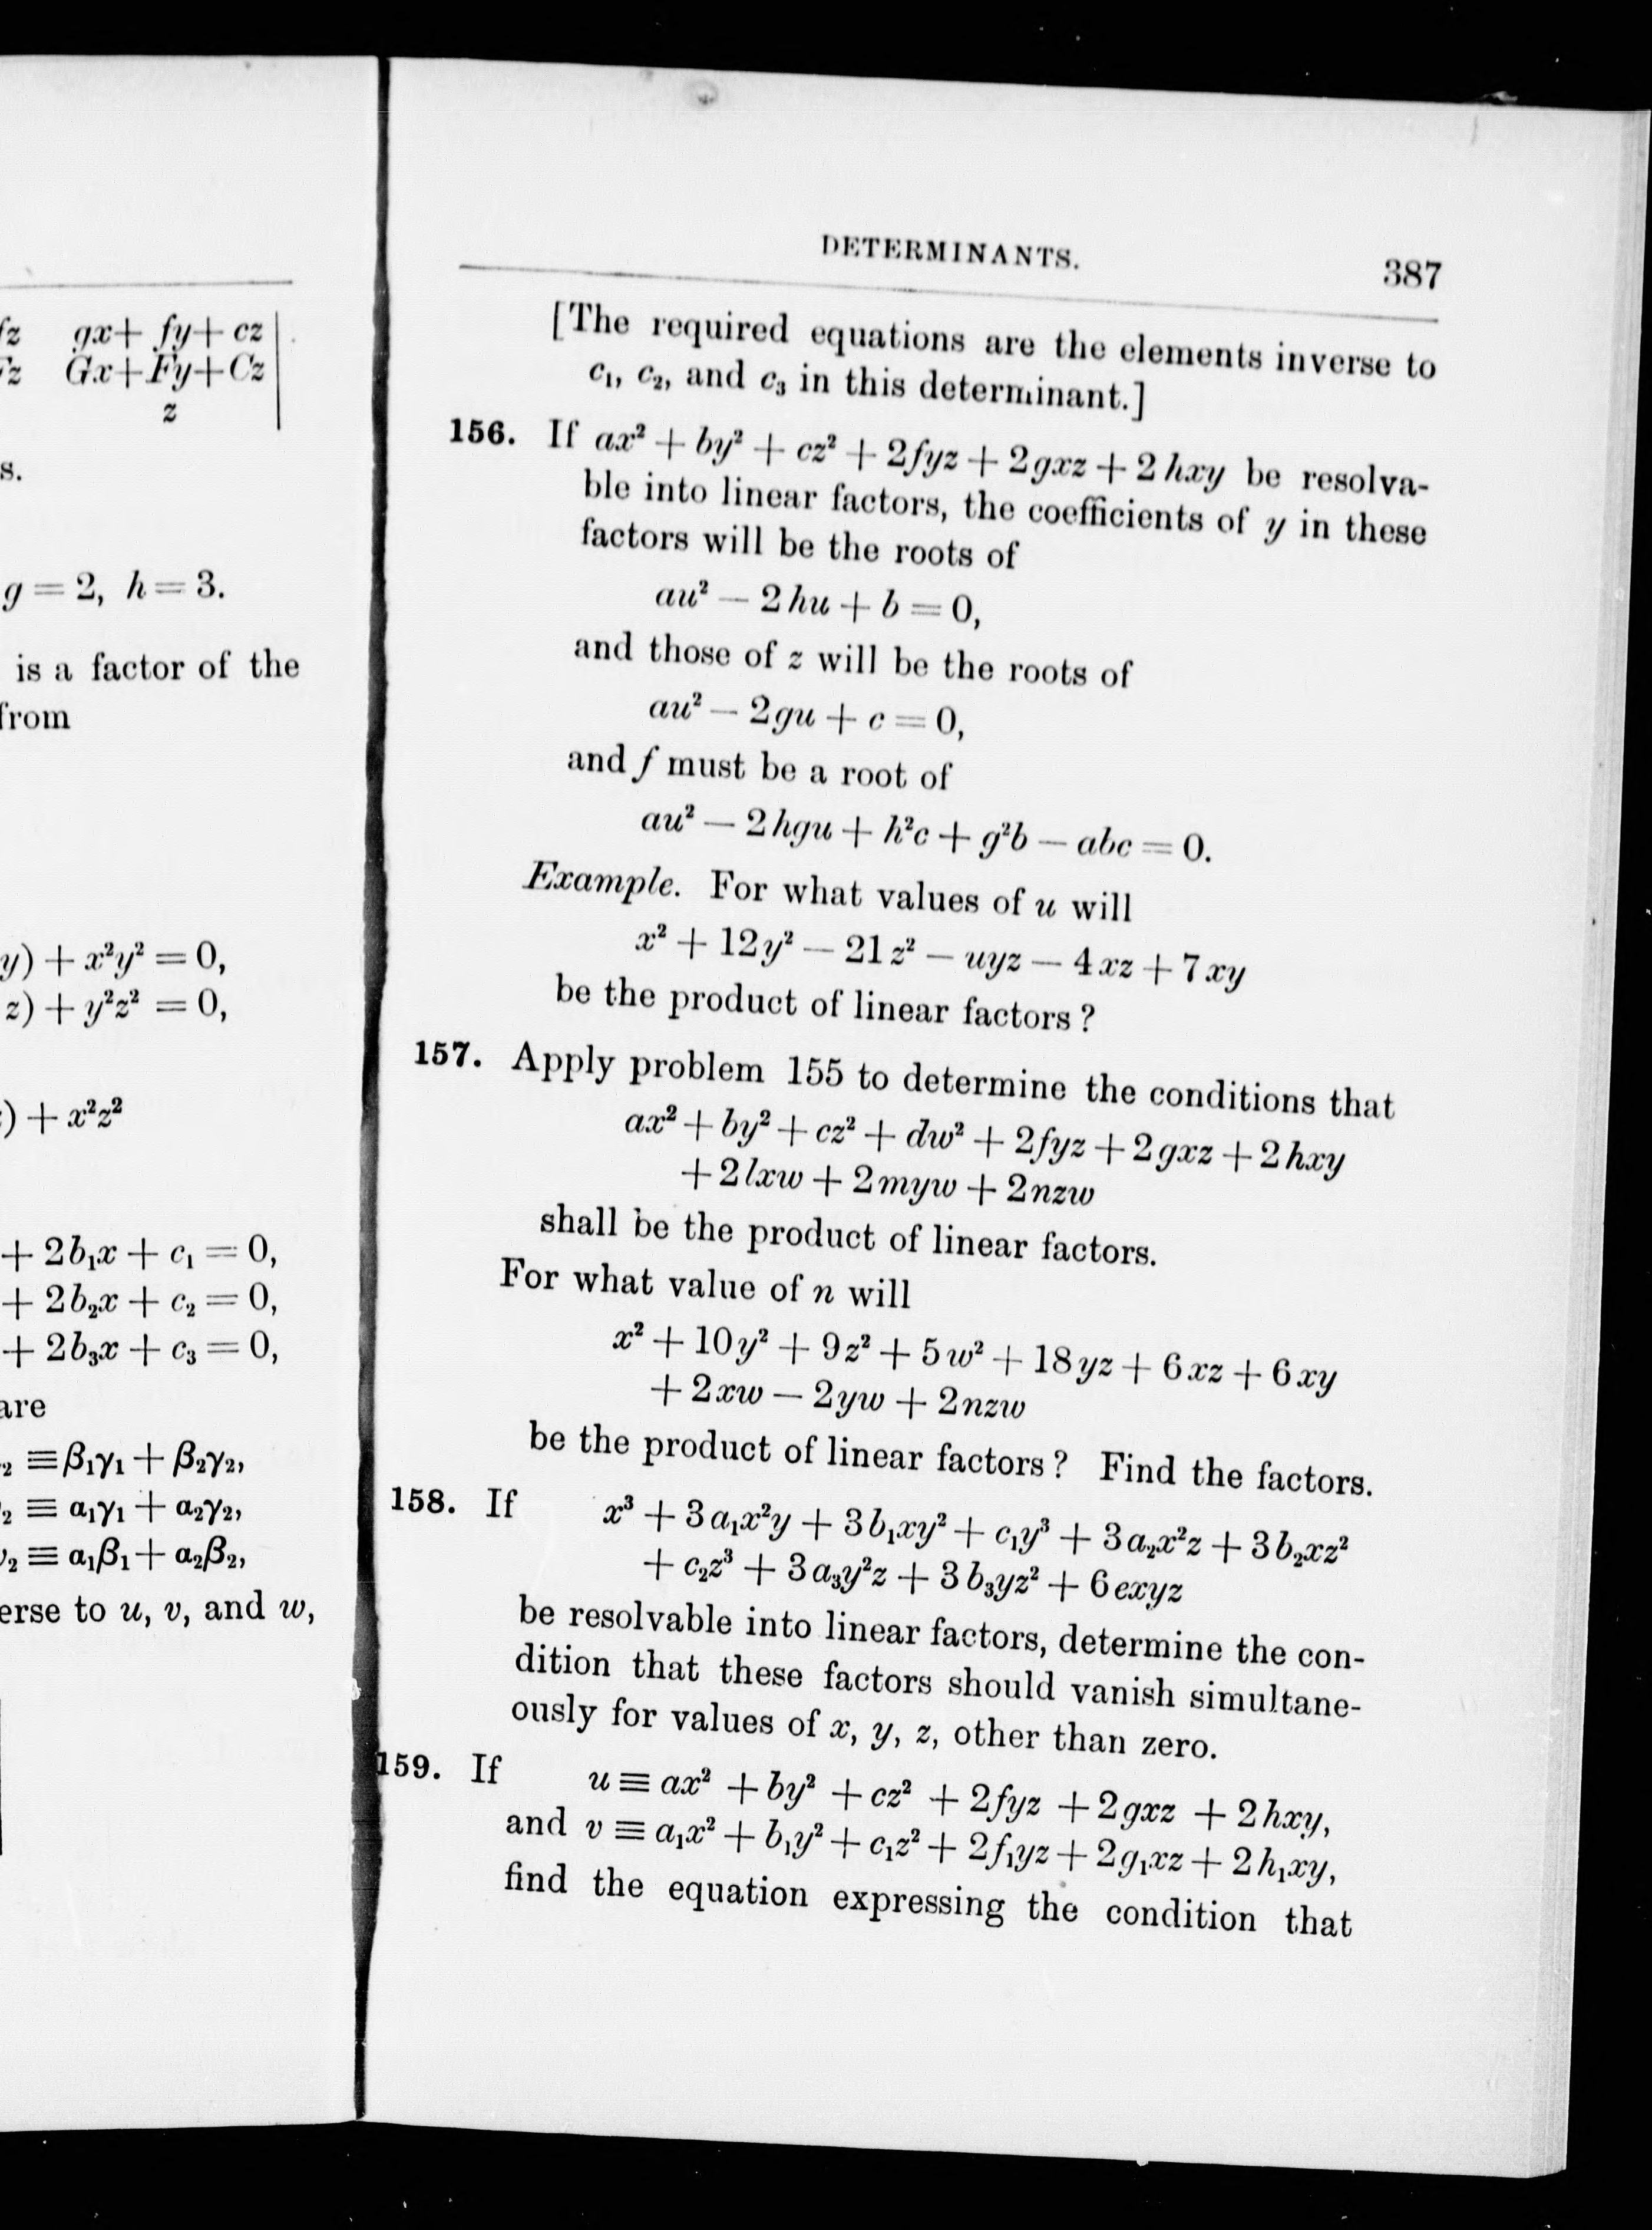 fz gx+ fy+ cz
Fz Gx+Fy+Cz
z
s.
g = 2, h = 3.
is a factor of the
from
y) + x²y² = 0,
z) + y²z² = 0,
) + x²z²
+ 2b₁x + c₁ = 0,
+ 2b₂x + c₂ = 0,
+ 2b₃x + c₃ = 0,
are
₂ ≡ β₁γ₁ + β₂γ₂,
₂ ≡ α₁γ₁ + α₂γ₂,
₂ ≡ α₁β₁ + α₂β₂,
erse to u, v, and w,
DETERMINANTS. 387
[The required equations are the elements inverse to
c₁, c₂, and c₃ in this determinant.]
156. If ax² + by² + cz² + 2fyz + 2gxz + 2hxy be resolva-
ble into linear factors, the coefficients of y in these
factors will be the roots of
au² — 2hu + b = 0,
and those of z will be the roots of
au² — 2gu + c = 0,
and f must be a root of
au² — 2hgu + h²c + g²b — abc = 0.
Example. For what values of u will
x² + 12y² — 21z² — uyz — 4xz + 7xy
be the product of linear factors?
157. Apply problem 155 to determine the conditions that
ax² + by² + cz² + dw² + 2fyz + 2gxz + 2hxy
+ 2lxw + 2myw + 2nzw
shall be the product of linear factors.
For what value of n will
x² + 10y² + 9z² + 5w² + 18yz + 6xz + 6xy
+ 2xw — 2yw + 2nzw
be the product of linear factors? Find the factors.
158. If x³ + 3a₁x²y + 3b₁xy² + c₁y³ + 3a₂x²z + 3b₂xz²
+ c₂z³ + 3a₃y²z + 3b₃yz² + 6exyz
be resolvable into linear factors, determine the con-
dition that these factors should vanish simultane-
ously for values of x, y, z, other than zero.
159. If u ≡ ax² + by² + cz² + 2fyz + 2gxz + 2hxy,
and v ≡ a₁x² + b₁y² + c₁z² + 2f₁yz + 2g₁xz + 2h₁xy,
find the equation expressing the condition that